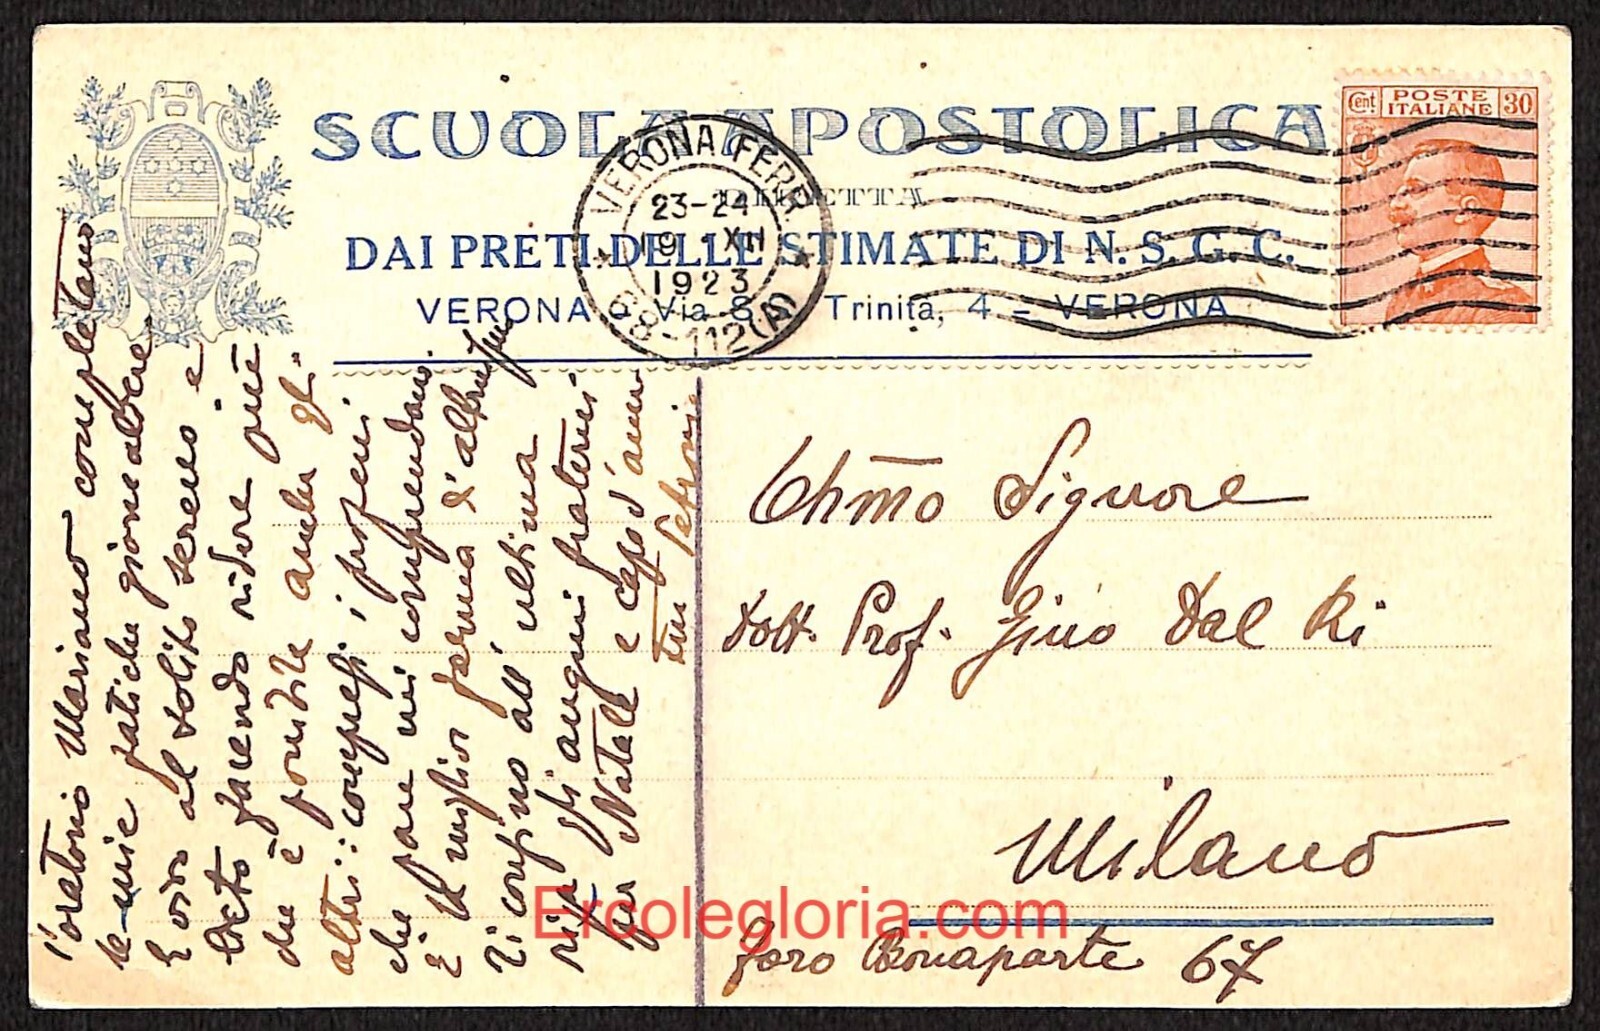 SCUOLA APOSTOLICA
DIRETTA
DAI PRETI DELLE STIMATE DI N. S. G. C.
VERONA - Via S. Trinità, 4 - VERONA
VERONA FERR.
23-24
19 XII
1923
98-112(A)
Cent POSTE ITALIANE 30
Chmo Signore
Dott. Prof. Gino Dal Ri
Milano
Foro Bonaparte 67
l'oratorio Mariano completano
le mie fatiche giornaliere
E ora al solito sereno e
lieto facendo ridere chi è
che è anche gli
altri: i
che pare mi comprendano
E il miglior
Ti confino all'ultima
riga gli auguri fraterni
per Natale e capo d'anno
tuo
Ercolegloria.com